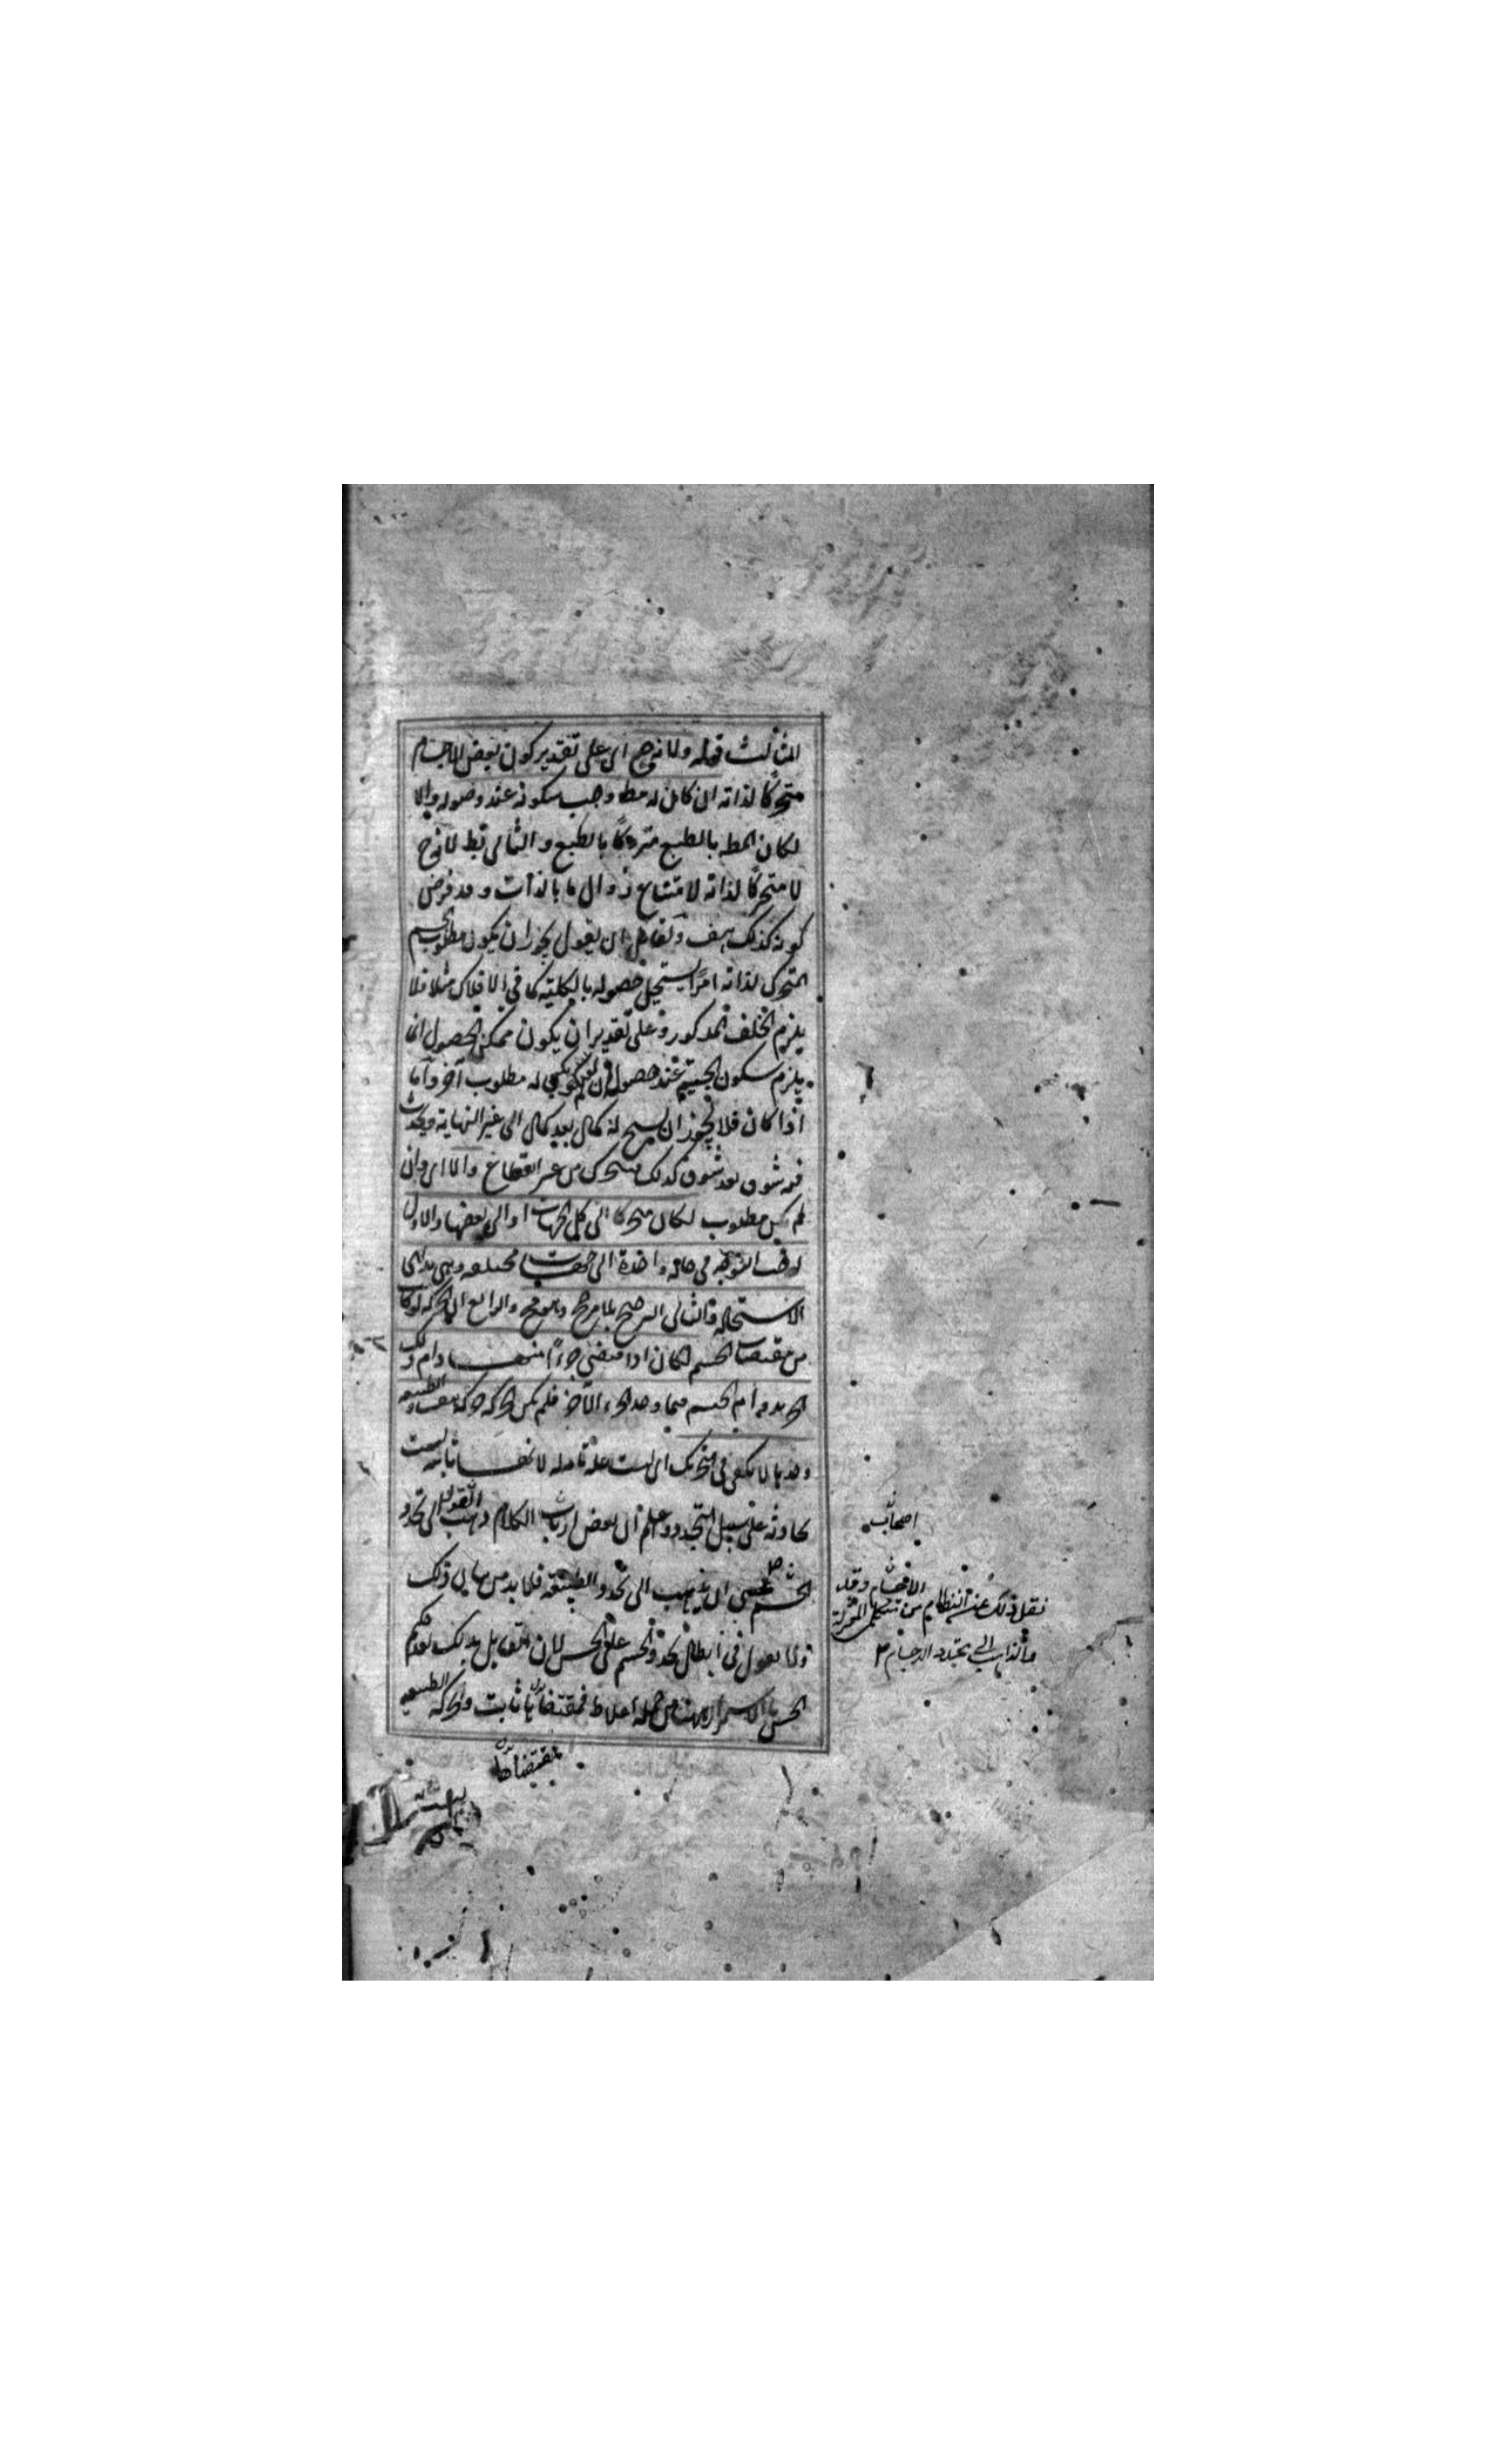 الثالث قوله ولانه ح اى على تقدير كون بعض الاجسام
متحركا لذاته ان كان له مط وجب سكونه عند وصوله والا
لكان المط بالطبع متروكا بالطبع و التالى بط لانه ح
لا متحركا لذاته لامتناع زوال ما بالذات و قد فرض
كونه كذلك هف ولقائل ان يقول يجوز ان يكون مطلوب الجسم
المتحرك لذاته امرا يستحيل حصوله بالكلية كما فى الافلاك مثلا فلا
يلزم الخلف المذكور وعلى تقدير ان يكون ممكن الحصول انما
يلزم سكون الجسم عند حصوله لو لم يكن له مطلوب آخر واما
اذا كان فلا يجوز ان له كمال بعد كمال الى غير النهاية ويحدث
شوق بعد شوق كذلك متحرك من غير انقطاع والا اى وان
لم يكن مطلوب لكان متحركا الى كل الجهات او الى بعضها والاول
التوجه فى حالة واحدة الى جهات مختلفة وهى بديهى
الاستحالة والثانى الترجيح بلا مرجح وهو مح والرابع ان الحركة لو كانت
من مقتضيات الجسم لكان اذا اقتضى جزءا منها دام ذلك
الجزء بدوام الجسم فما وجد الجزء الآخر فلم تكن الحركة حركة هف والطبيعة
وحدها لا تكفى فى تحريك اى ليست علة تامة له لانها ثابتة ليست
بحادثة على سبيل التجدد واعلم ان بعض ارباب الكلام ذهب الى تجدد
الجسم فعسى ان يذهب الى تجدد الطبيعة فلا بد من بيان ذلك
ولا يعول فى ابطال تجدد الجسم على الحس لان القائل بذلك
الحس بالاستمرار من جملة اغلاطه فمقتضاها ثابت والحركة الطبيعية
بمقتضاها
اصحاب
الاجسام وقد
نقل ذلك عن النظام من متكلمى المعتزلة
والذاهب الى تجدد الاجسام